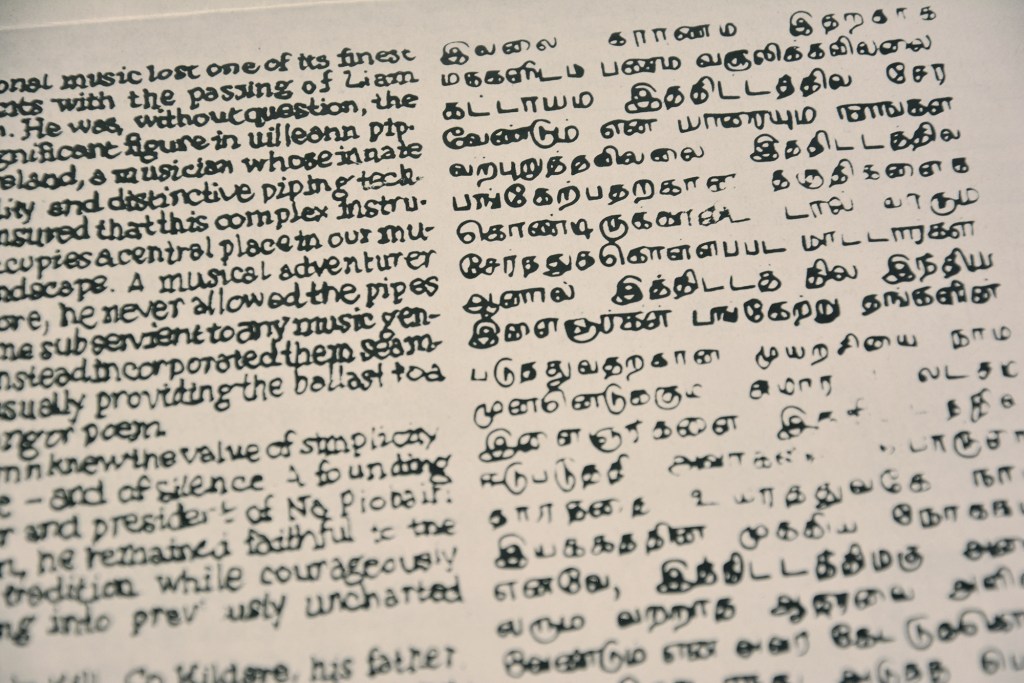 onal music lost one of its finest
nts with the passing of Liam
n. He was, without question, the
gnificant figure in uilleann pip-
eland, a musician whose innate
lity and distinctive piping tech-
nsured that this complex instru-
ccupies a central place in our mu-
ndscape. A musical adventurer
ore, he never allowed the pipes
me subservient to any music gen-
nstead incorporated them seam-
sually providing the ballast to a
ong or poem.
nn knew the value of simplicity
e - and of silence A founding
r and president of Na Piobairí
n, he remained faithful to the
tradition while courageously
ng into previously uncharted
Co Kildare, his father
இவலை காரணம இதறகாக
மககளிடம பணம வசூலிக்கவிலலை
கட்டாயம இததிட்டத்தில சேர
வேண்டும் என யாரையும் நாஙகள
வற்புறுத்தவிலலை இததிட்டத்தில
பங்கேற்பதறகான தகுதிகளைக
கொண்டிருகனறிட்ட டால யாரும
சேர்ததுகொள்ளபபட மாட்டார்கள
ஆனால் இத்திட்டத் தில இந்திய
இளைஞர்கள் பங்கேற்று தங்களின்
படுத்துவதறகான முயறசியை நாம
முனனெடுககும் சுமார லட்சக
இளைஞர்களை
ஈடுபடுத்தி
உயர்த்துவதே நா
இயக்கத்தின் முக்கிய நோகக
எனவே, இத்திட்டத்திறகு அனை
வரும் வற்றாத ஆதரவை அளி
வேண்டும் என அவர் கேட்டுக்கொ